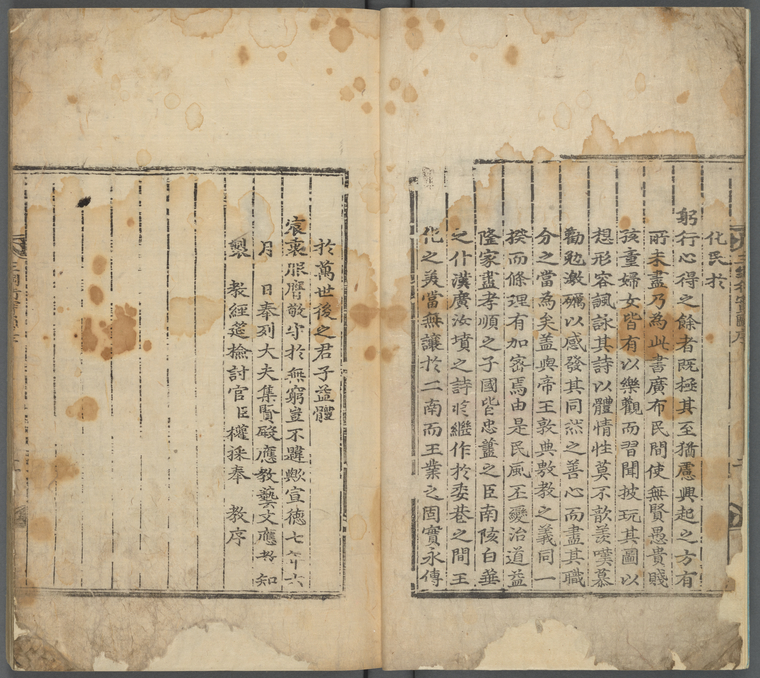 三綱行實圖序
化民於
躬行心得之餘者既極其至猶慮興起之方有
所未盡乃為此書廣布民間使無賢愚貴賤
孩童婦女皆有以樂觀而習聞披玩其圖以
想形容諷詠其詩以體情性莫不歆羨嘆慕
勸勉激礪以感發其同然之善心而盡其職
分之當為矣盖與帝王敦典敷教之義同一
揆而條理有加密焉由是民風丕變治道益
隆家盡孝順之子國皆忠藎之臣南陔白華
之什漢廣汝墳之詩將繼作於委巷之間王
化之美當無讓於二南而王業之固實永傳
於萬世後之君子益體
宸衷服膺敬守於無窮豈不韙歟宣德七年六
月 日奉列大夫集賢殿應教藝文應教知
製 教經筵檢討官臣權採奉 教序